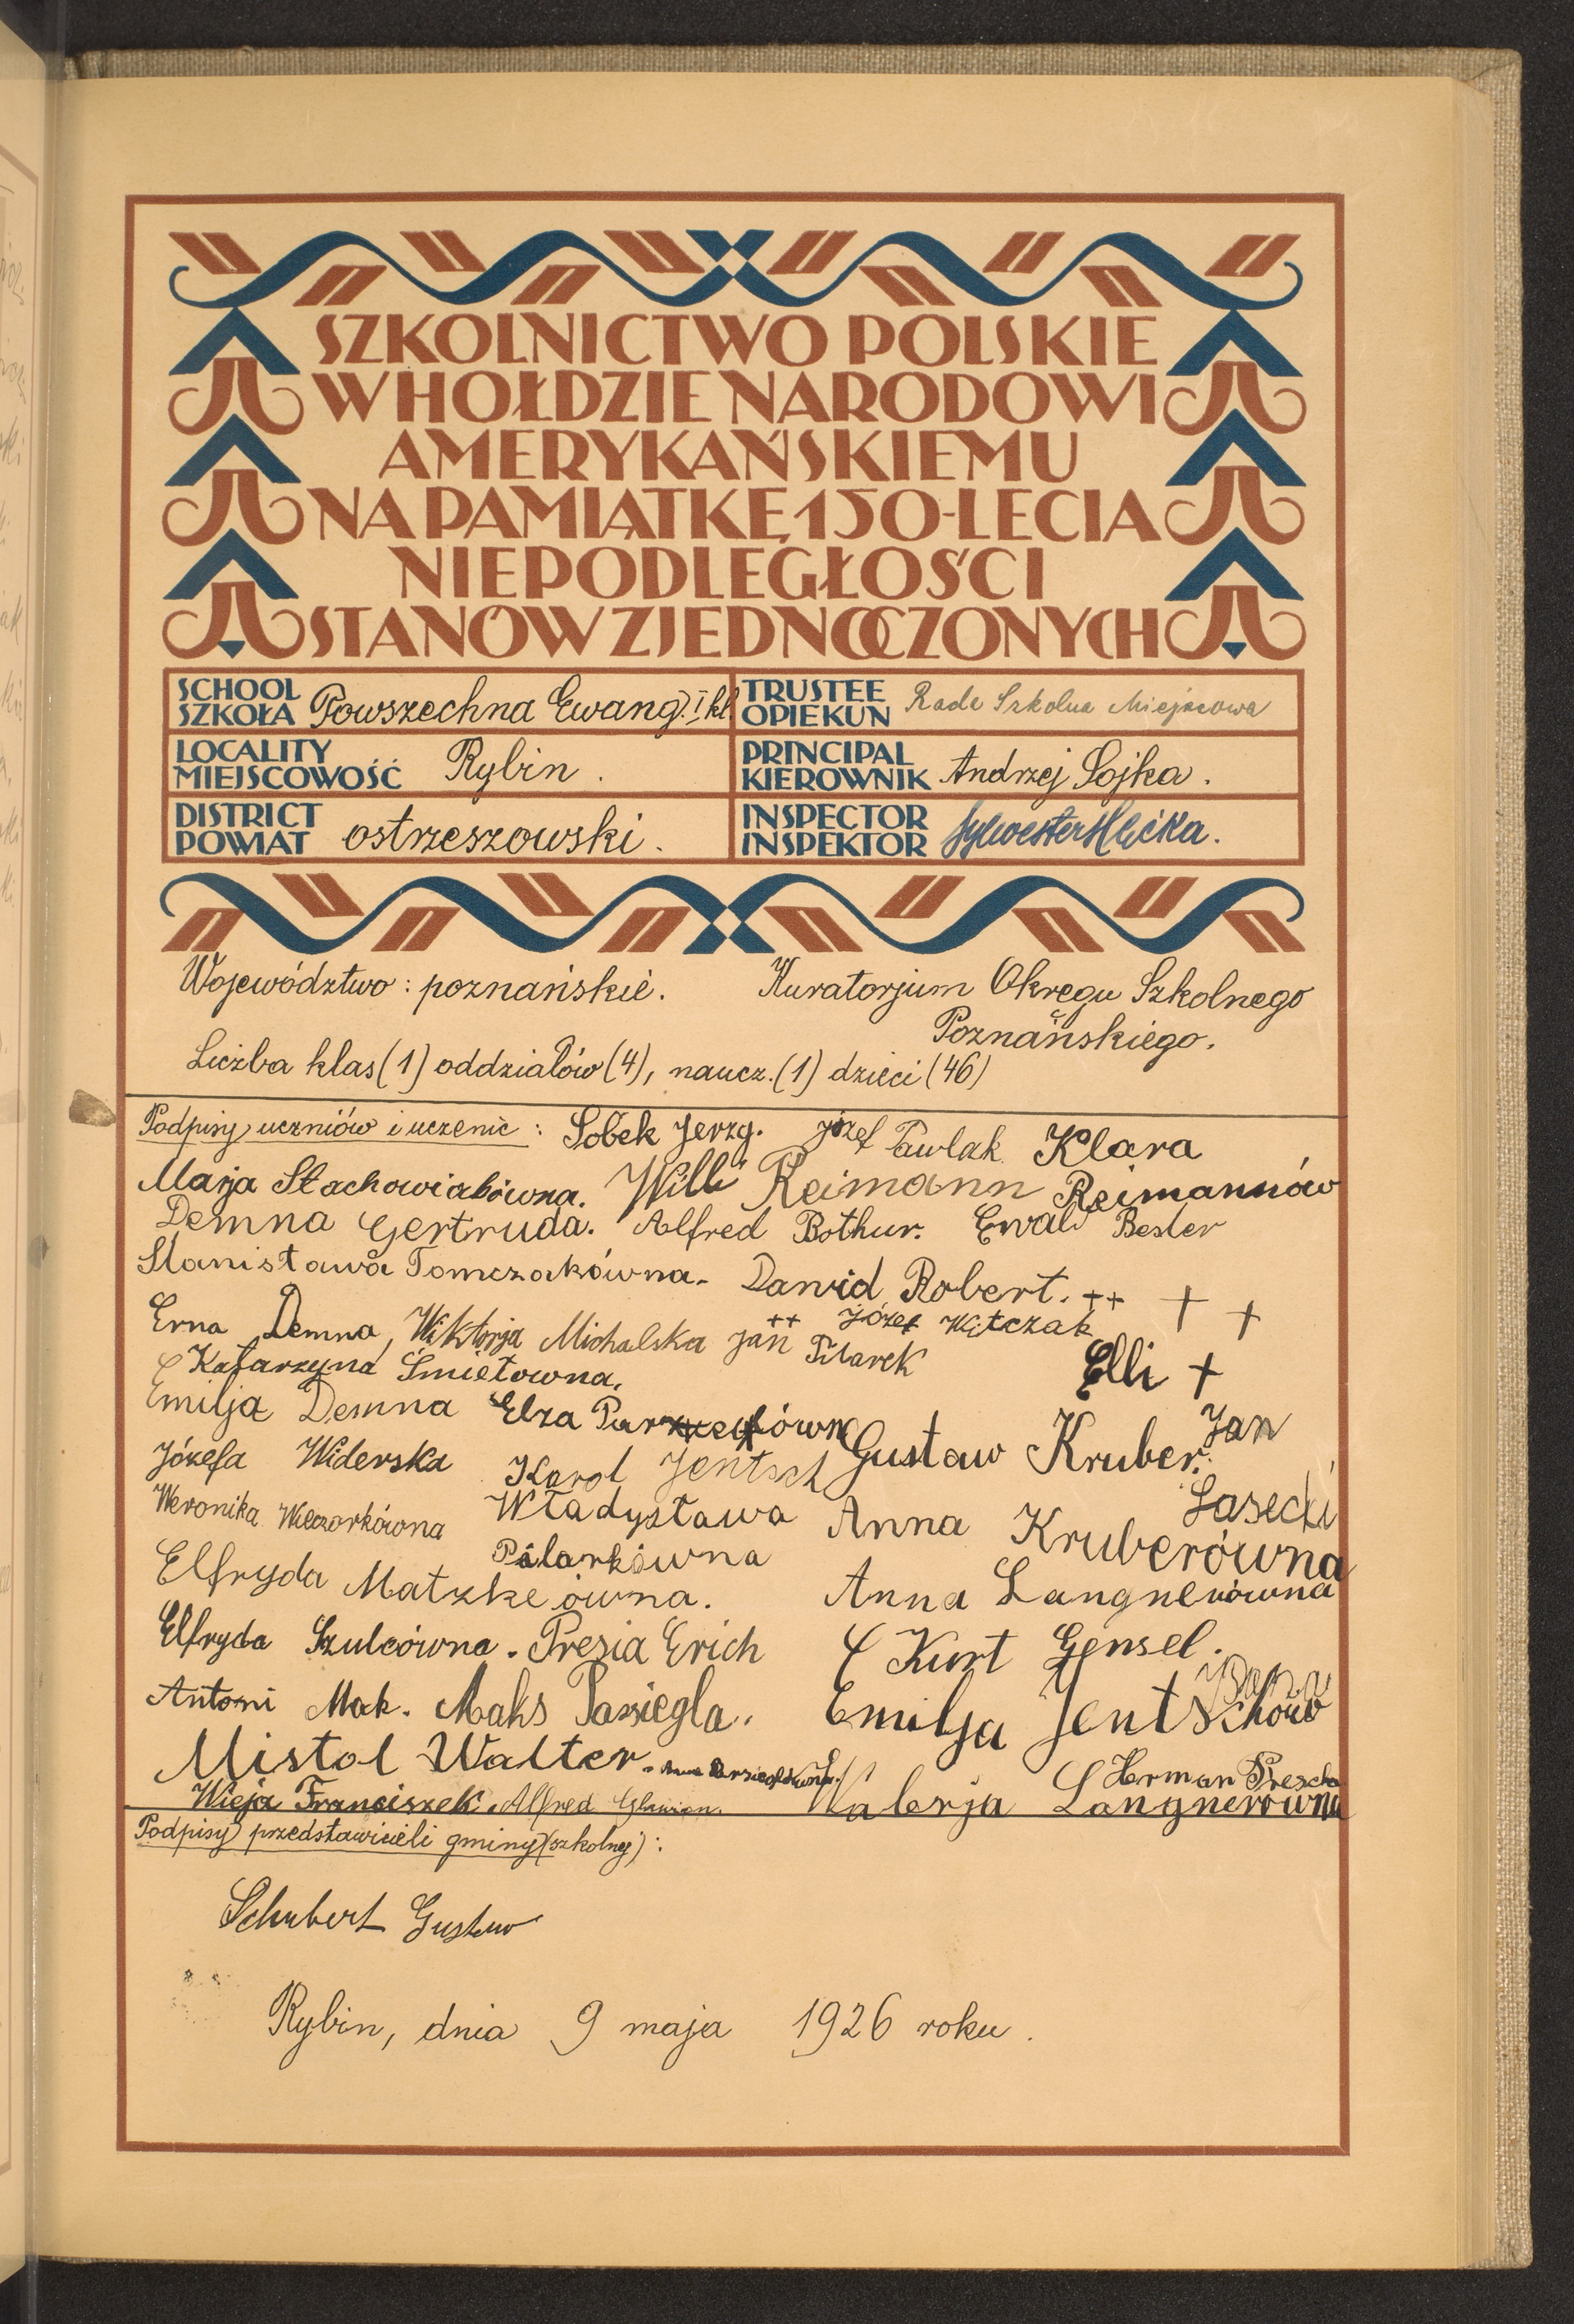 SZKOLNICTWO POLSKIE
W HOŁDZIE NARODOWI
AMERYKAŃSKIEMU
NA PAMIĄTKĘ 150-LECIA
NIEPODLEGŁOŚCI
STANÓW ZJEDNOCZONYCH
SCHOOL SZKOŁA Powszechna Ewang. I kl.
TRUSTEE OPIEKUN Rada Szkolna Miejscowa
LOCALITY MIEJSCOWOŚĆ Rybin.
PRINCIPAL KIEROWNIK Andrzej Sojka.
DISTRICT POWIAT ostrzeszowski.
INSPECTOR INSPEKTOR Sylwester
Województwo: poznańskie. Kuratorjum Okręgu Szkolnego
Poznańskiego.
Liczba klas (1) oddziałów (4), naucz. (1) dzieci (46)
Podpisy uczniów i uczenic: Sobek Jerzy. Józef Pawlak Klara
Marja Stachowiakówna. Willi Reimann Reimannów
Demna Gertruda. Alfred Bothur. Ewald Bester
Stanisława Tomczakówna. Dawid Robert. ++ + +
Erna Demna, Wiktorja Michalska ++ Jan Pilarek Józef Witczak
Katarzyna Śmiełowna. Elli +
Emilja Demna Elza Gustaw Kruber. Jan
Józefa Widerska Karol Jentsch Lasecki
Weronika Wieczorkówna Władysława Anna Kruberówna
Pilarkówna
Elfryda Matzkeówna. Anna Langnerówna
Elfryda Szulcówna. Presia Erich Kurt Gensel.
Antoni Mak. Maks Pasiegla. Emilja Jentschów
Mistol Walter. Anna Herman
Wieja Franciszek. Alfred Walerja Langnerówna
Podpisy przedstawicieli gminy (szkolnej):
Schubert Gustaw
Rybin, dnia 9 maja 1926 roku.